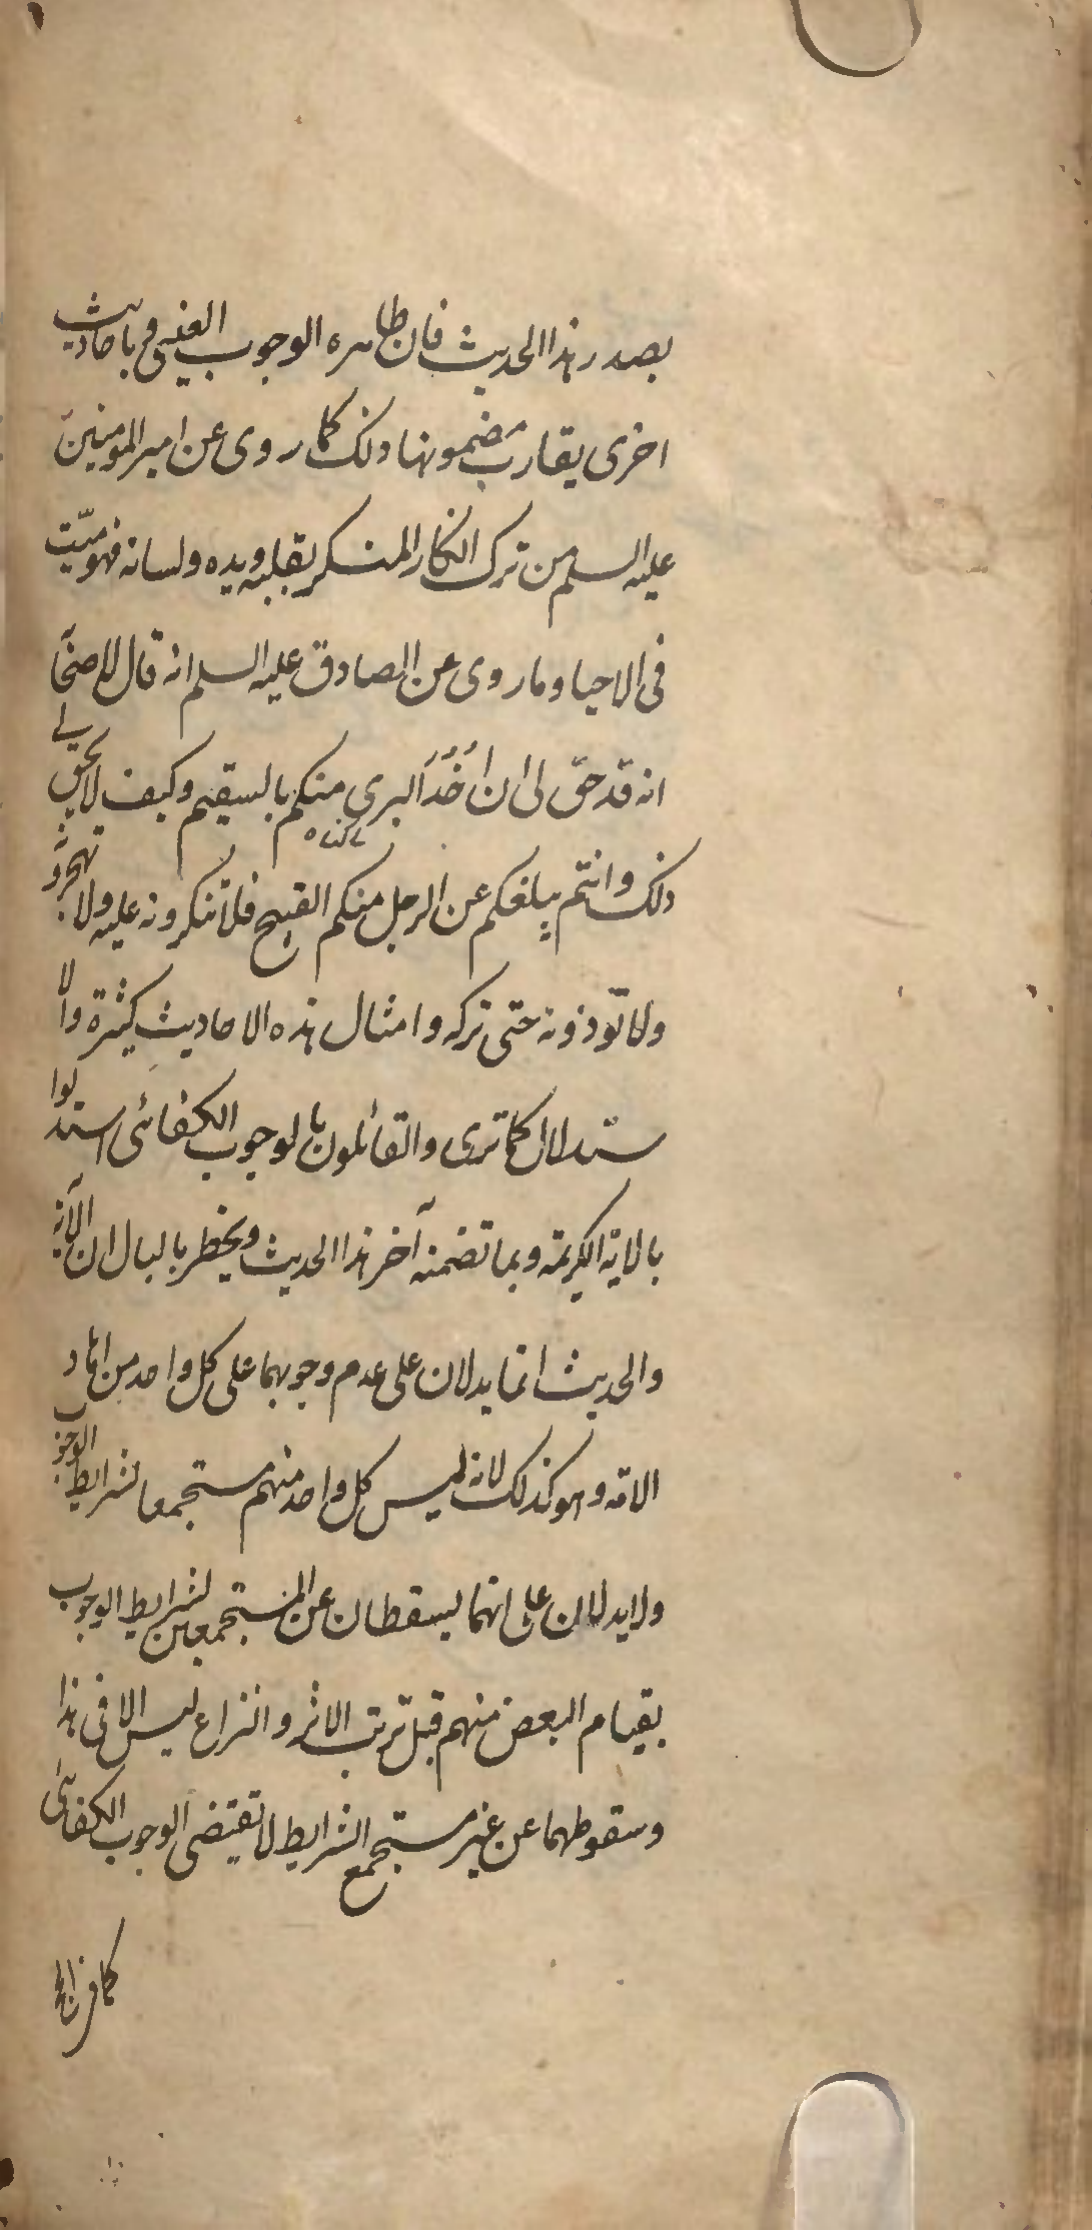 بصدر هذا الحديث فان ظاهره الوجوب العيني و باحاديث
اخرى يقارب مضمونها ذلك كما روى عن امير المومنين
عليه السلم من ترك انكار المنكر بقلبه ويده ولسانه فهو ميّت
فى الاحيا وما روى عن الصادق عليه السلم انه قال لاصحا
انه قد حقّ لى ان اٰخُذَ البرى منكم بالسقيم وكيف لا يحق لي
ذلك وانتم يبلغكم عن الرجل منكم القبيح فلا تنكرونه عليه ولا تهجرو
ولا تؤذونه حتى تركه وامثال هذه الاحاديث كثيرة والا
ستدلال كما ترى والقائلون بالوجوب الكفائى استدلوا
بالاية الكريمة وبما تضمنه آخر هذا الحديث ويخطر بالبال ان الآية
والحديث انما يدلان على عدم وجوبهما على كل واحد من احاد
الامّه وهو كذلك لانه ليس كل واحد منهم مستجمعا لشرايط الوجوب
ولا يدلان على انهما يسقطان عن المستجمعين لشرايط الوجوب
بقيام البعض منهم قبل ترتب الاثر والنزاع ليس الا فى هذا
وسقوطهما عن غير مستجمع الشرايط لا تقتضى الوجوب الكفائى